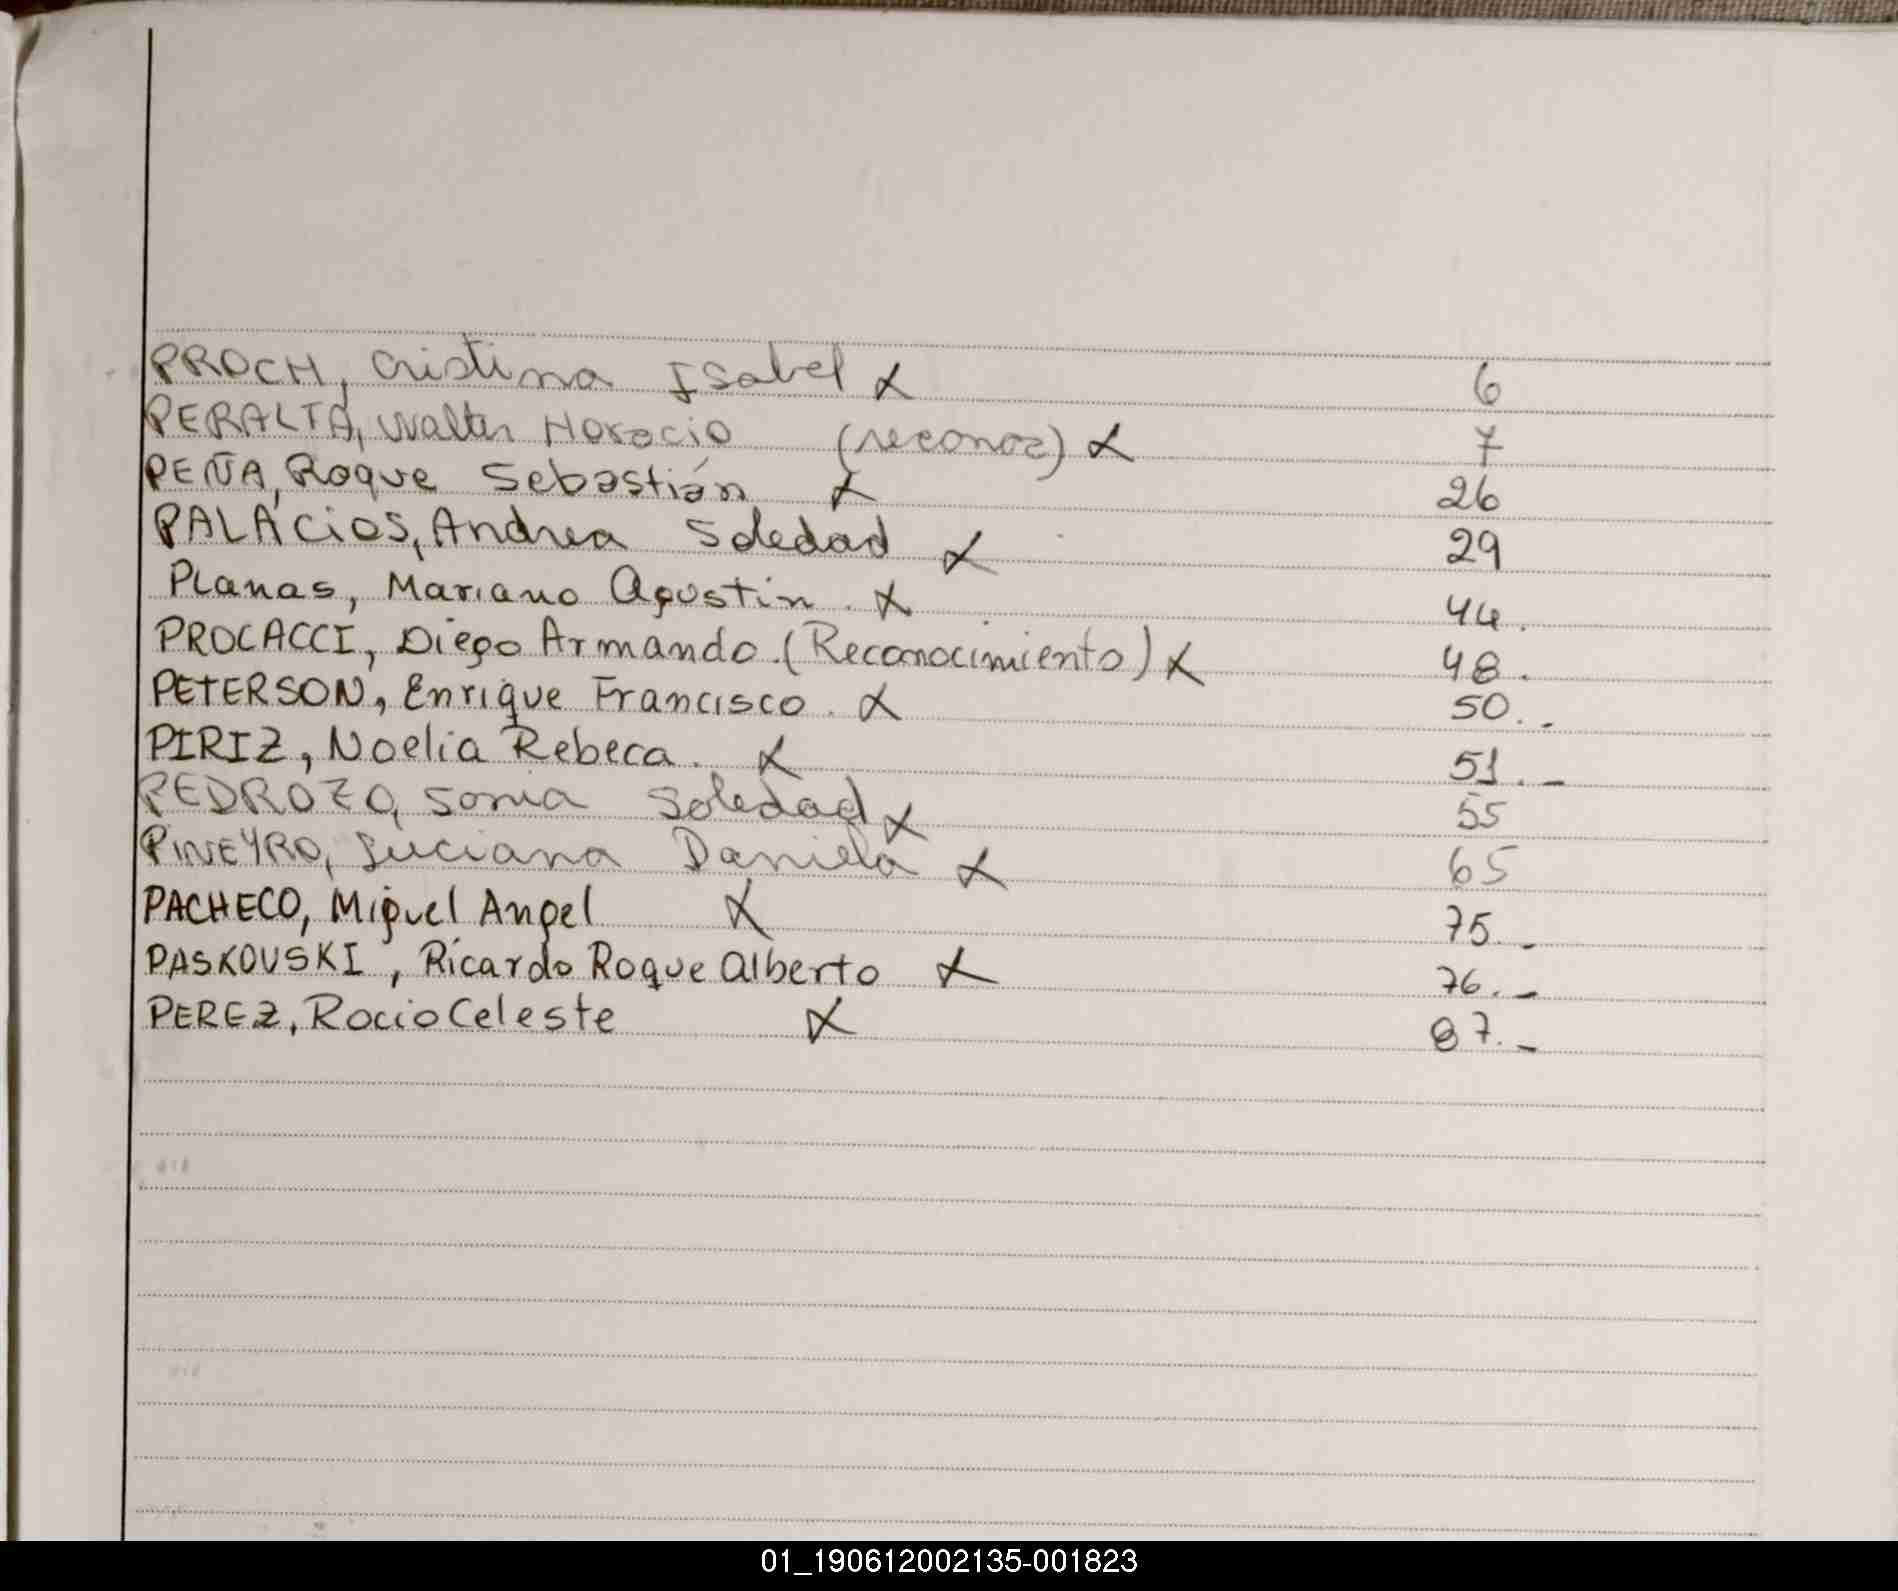 PROCH, Cristina Isabel X 6
PERALTA, Walter Horacio (reconoc) X 7
PEÑA, Roque Sebastián X 26
PALACIOS, Andrea Soledad X 29
Planas, Mariano Agustin. X 44.
PROCACCI, Diego Armando. (Reconocimiento) X 48.
PETERSON, Enrique Francisco. X 50._
PIRIZ, Noelia Rebeca. X 51._
PEDROZO, Sonia Soledad X 55
PINEYRO, Luciana Daniela X 65
PACHECO, Miguel Angel X 75._
PASKOUSKI, Ricardo Roque Alberto X 76._
PEREZ, Rocio Celeste X 87._
01_190612002135-001823